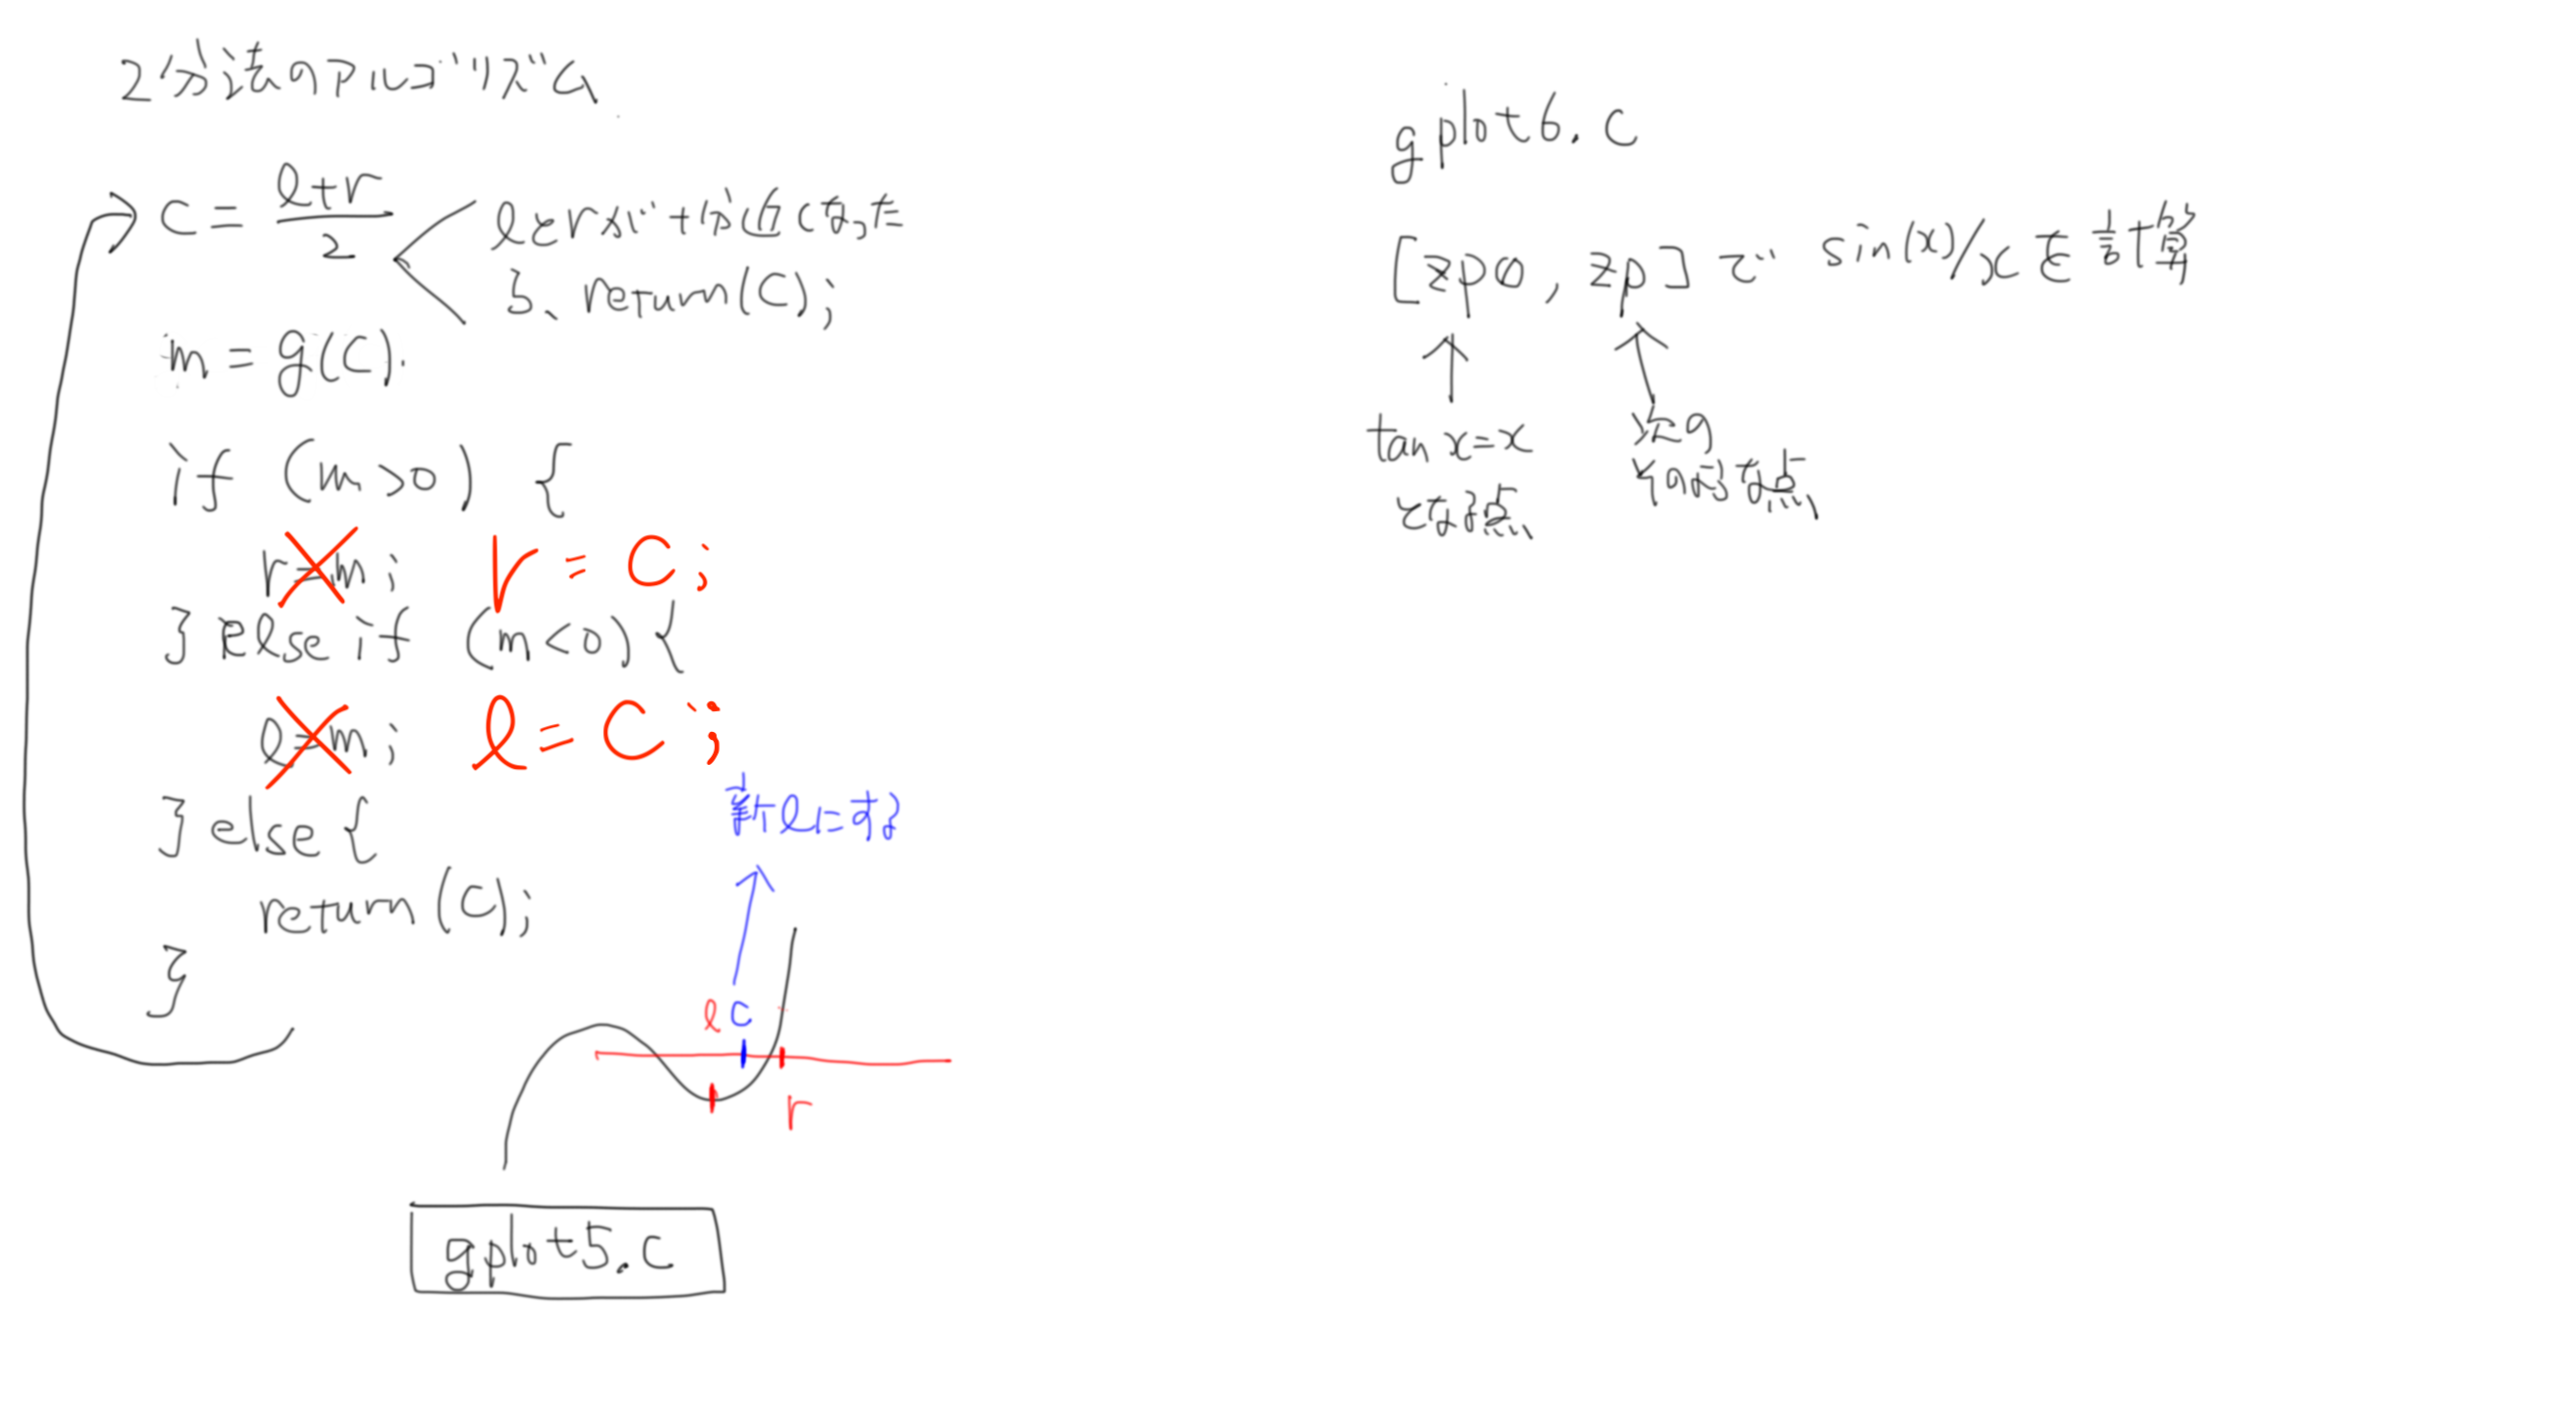 2分法のアルゴリズム
c = (l+r)/2
lとrが十分近くなった
ら、return(c);
m = g(c).
if (m>0) {
r=m; r = c;
} else if (m<0) {
l=m; l = c ;
新lにする
} else {
return(c);
}
l c
r
gplot5.c
gplot6.c
[zp0, zp] で sin(x)/x を計算
tan x=x
となる点
次の
そのような点